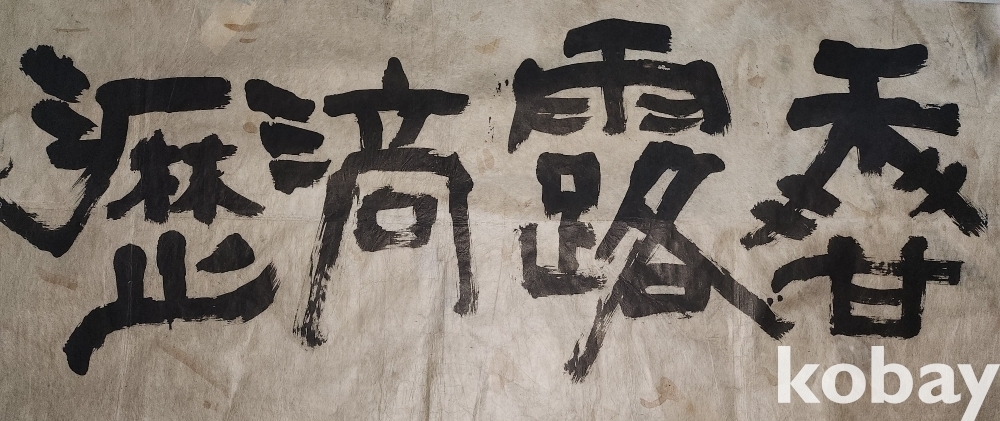 香露滴瀝
kobay